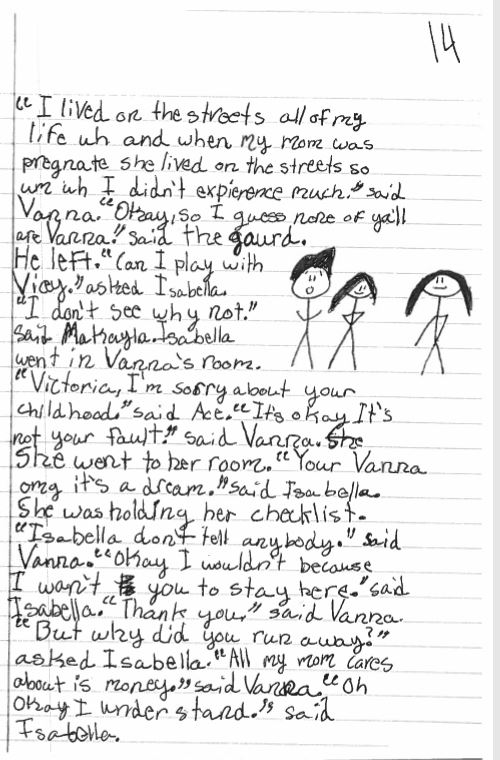 14
"I lived on the streets all of my
life uh and when my mom was
pregnate she lived on the streets so
um uh I didn't expierence much." said
Vanna. "Okay, so I guess none of ya'll
are Vanna." said the gaurd.
He left. "Can I play with
Vicy." asked Isabella.
"I don't see why not."
said Makayla. Isabella
went in Vanna's room.
"Victoria, I'm sorry about your
childhood." said Ace. "It's okay It's
not your fault." said Vanna. She
She went to her room. "Your Vanna
omg it's a dream." said Isabella.
She was holding her checklist.
"Isabella don't tell anybody." said
Vanna. "Okay I wouldn't because
I wan't you to stay here." said
Isabella. "Thank you," said Vanna.
"But why did you run away?"
asked Isabella. "All my mom cares
about is money." said Vanna. "Oh
Okay I understand." said
Isabella.